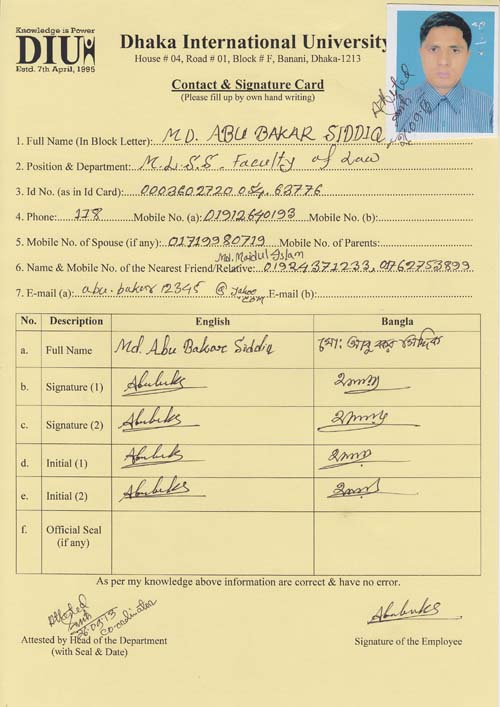 Knowledge is Power
DIU
Estd. 7th April, 1995
Dhaka International University
House # 04, Road # 01, Block # F, Banani, Dhaka-1213
Contact & Signature Card
(Please fill up by own hand writing)
Attested
26.03.13
1. Full Name (In Block Letter): MD. ABU BAKAR SIDDIQ
2. Position & Department: M.L.S.S. Faculty of Law
3. Id No. (as in Id Card): 0003602720 054. 63776
4. Phone: 118 Mobile No. (a): 01912640193 Mobile No. (b):
5. Mobile No. of Spouse (if any): 01719980719 Mobile No. of Parents:
Md. Maidul Islam
6. Name & Mobile No. of the Nearest Friend/Relative: 01924371233, 01762753899
7. E-mail (a): abu.bakar 12345 @ yahoo.com E-mail (b):
No. Description English Bangla
a. Full Name Md. Abu Bakar Siddiq মো: আবু বকর সিদ্দিক
b. Signature (1)
c. Signature (2)
d. Initial (1)
e. Initial (2)
f. Official Seal
(if any)
As per my knowledge above information are correct & have no error.
Attested
26.03.13
Co-ordinator
Attested by Head of the Department
(with Seal & Date)
Signature of the Employee